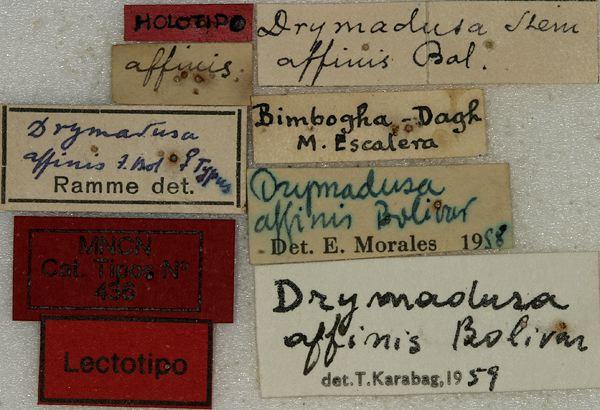 HOLOTIPO
affinis.
Drymadusa Stein
affinis Bol.
Drymadusa
affinis I. Bol ♀ Typus
Ramme det.
Bimbogha-Dagh
M. Escalera
Drymadusa
affinis Bolivar
Det. E. Morales 1958
MNCN
Cat. Tipos Nº
436
Lectotipo
Drymadusa
affinis Bolivar
det.T.Karabag,1959